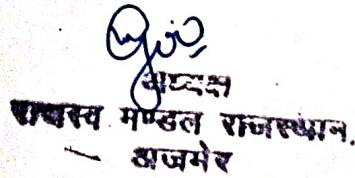 अध्यक्ष
राजस्व मण्डल राजस्थान.
अजमेर